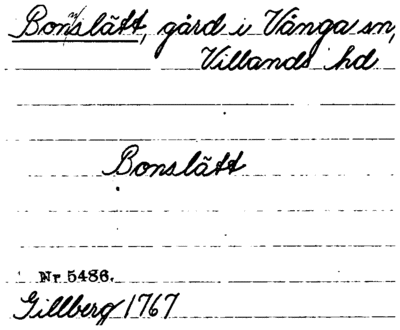 Bonslätt, gård i Vånga sn,
Villands hd
Bonslätt
Nr 5486.
Gillberg 1767